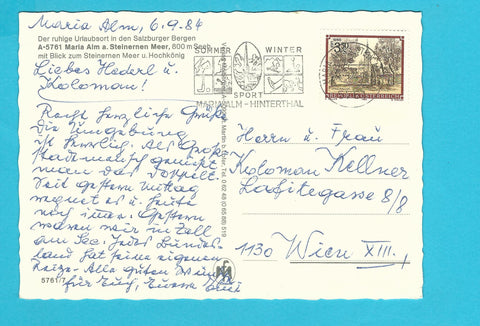 Maria Alm, 6.9.84
Der ruhige Urlaubsort in den Salzburger Bergen
A-5761 Maria Alm a. Steinernen Meer, 800 m Seeh.
mit Blick zum Steinernen Meer u. Hochkönig
Liebes Hederl u.
Koloman!
Recht herzliche Grüße
Die Umgebung
ist herrlich. Als Groß-
stadtmensch genießt
man das doppelt.
Seit gestern Mittag
regnet es u. heute
noch immer. Gestern
waren wir in Zell
am See. Jedes Bundes-
land hat seine eigenen
Reize. Alles Gute
für Euch, Eure
5761/
SOMMER
WINTER
SPORT
MARIA ALM - HINTERTHAL
REPUBLIK ÖSTERREICH
Herrn u. Frau
Koloman Kellner
8/8
1130 Wien XIII.